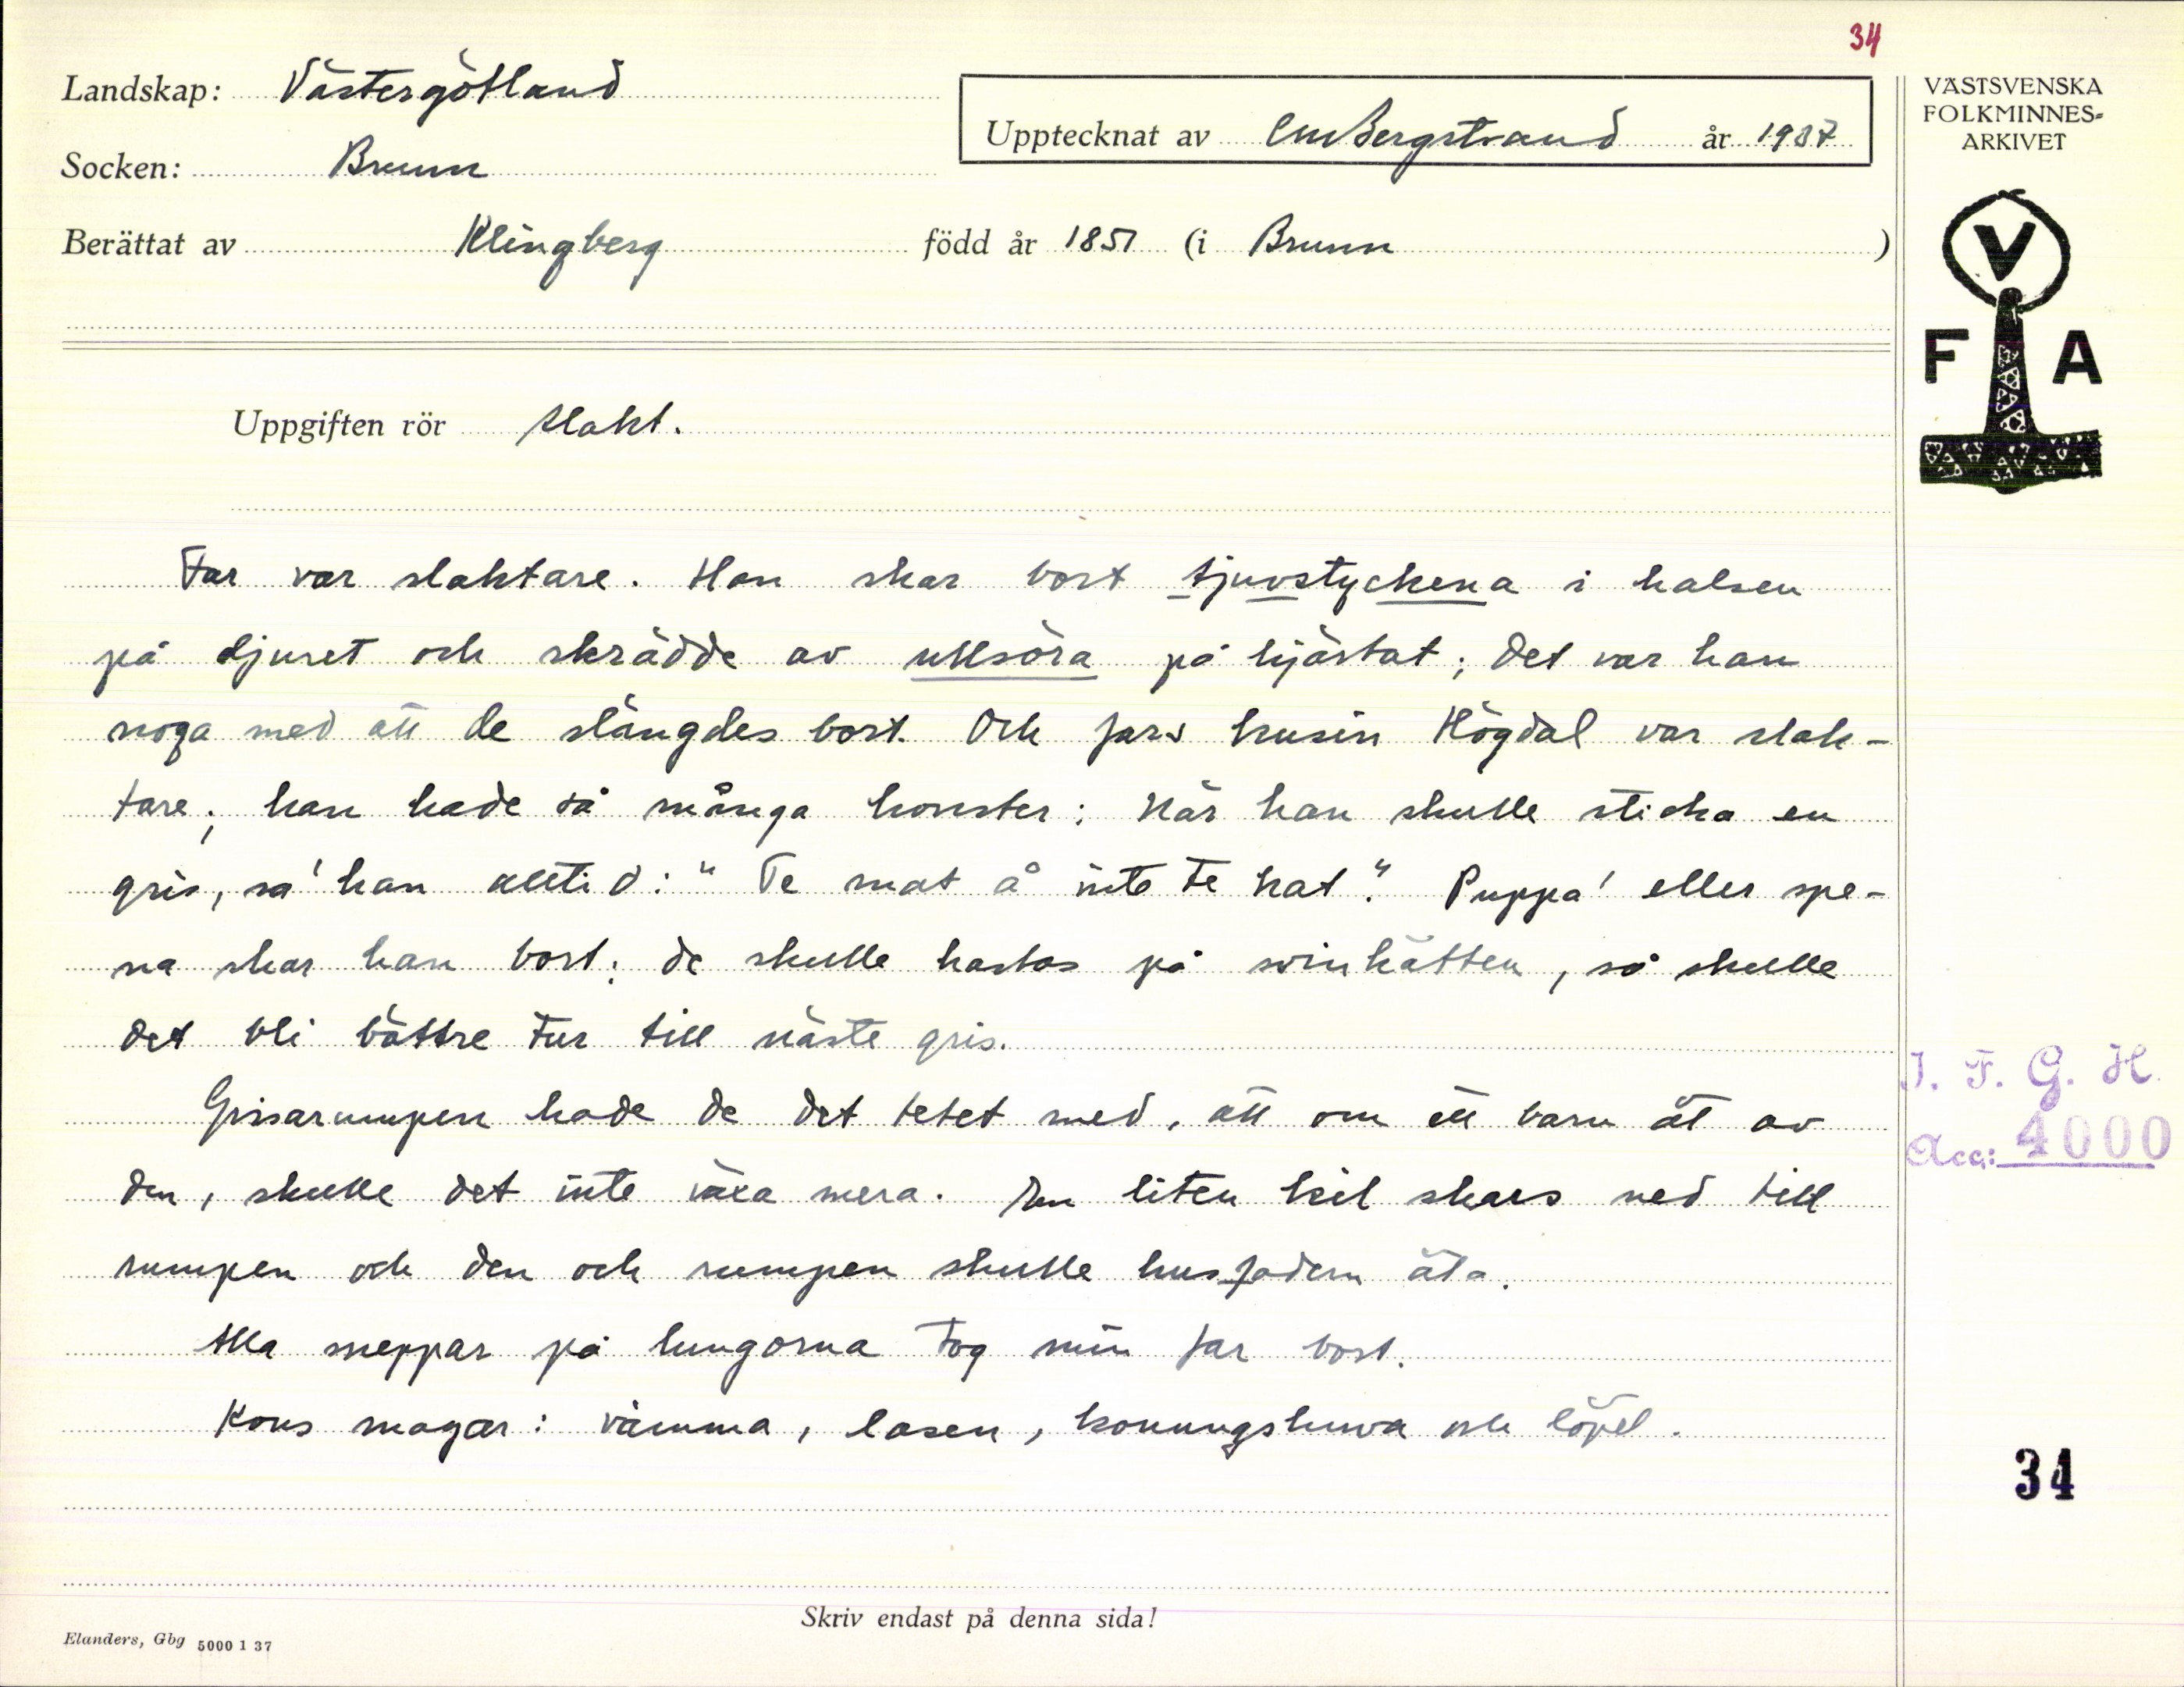 34
Landskap: Västergötland
Upptecknat av CMBergstrand år 1937
VÄSTSVENSKA
FOLKMINNES-
ARKIVET
Socken: Brunn
Berättat av Klingberg född år 1851 (i Brunn )
V
F A
Uppgiften rör slakt.
Far var slaktare. Han skar bort tjuvstyckena i halsen
på djuret och skrädde av ullsöra på hjärtat; det var han
noga med att de slängdes bort. Och fars kusin Högdal var slak-
tare; han hade så många konster: När han skulle sticka en
gris, sa' han alltid: "Te mat å inte te hat". Puppa' eller spe-
na skar han bort; de skulle kastas på svinhätten, så skulle
det bli bättre tur till näste gris.
Grisarumpen hade de det tetet med, att om ett barn åt av
den, skulle det inte växa mera. En liten kil skars ned till
rumpen och den och rumpen skulle husfadern äta.
Alla sneppar på lungorna tog min far bort.
Kons magar: våmma, lasen, konungshuva och löpel.
I. F. G. H.
Acc: 4000
34
Skriv endast på denna sida!
Elanders, Gbg 5000 1 37